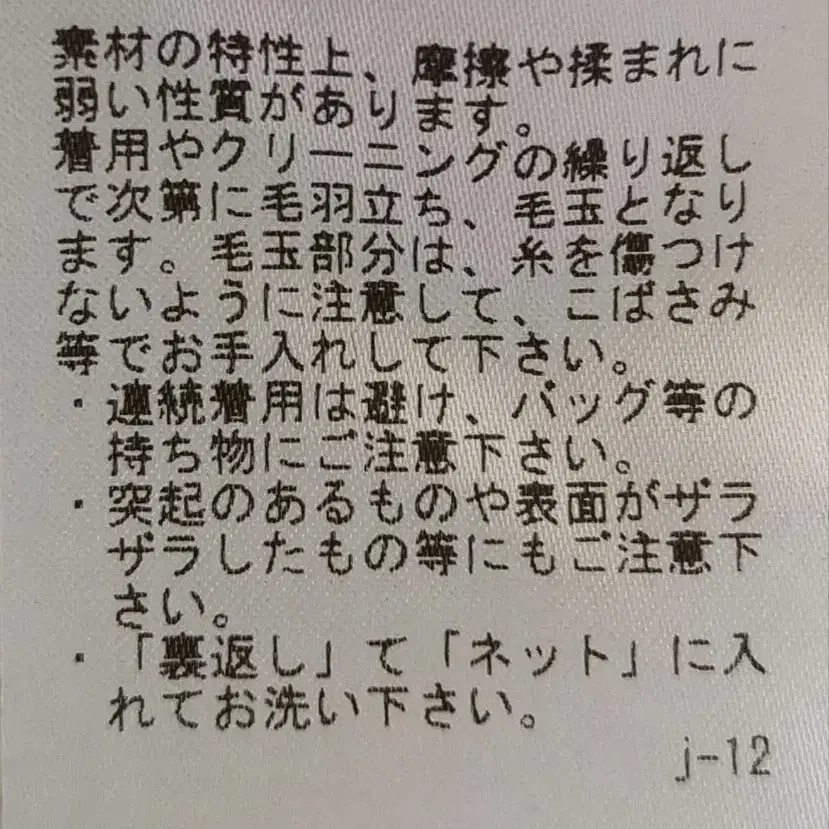 素材の特性上、摩擦や揉まれに
弱い性質があります。
着用やクリーニングの繰り返し
で次第に毛羽立ち、毛玉となり
ます。毛玉部分は、糸を傷つけ
ないように注意して、こばさみ
等でお手入れして下さい。
・連続着用は避け、バッグ等の
持ち物にご注意下さい。
・突起のあるものや表面がザラ
ザラしたもの等にもご注意下
さい。
・「裏返し」て「ネット」に入
れてお洗い下さい。
j-12